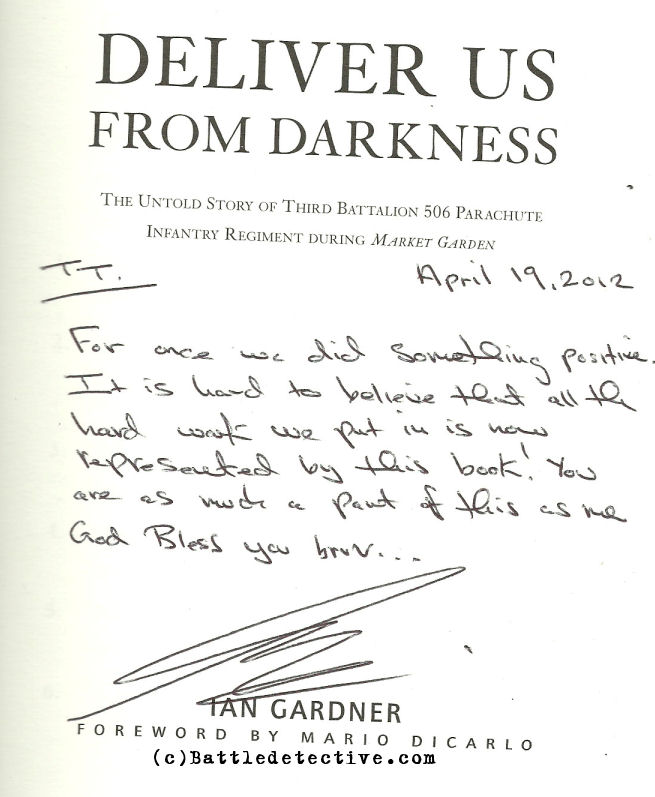 DELIVER US
FROM DARKNESS
THE UNTOLD STORY OF THIRD BATTALION 506 PARACHUTE
INFANTRY REGIMENT DURING MARKET GARDEN
T.T.
April 19, 2012
For once we did something positive.
It is hard to believe that all the
hard work we put in is now
represented by this book! You
are as much a part of this as me
God Bless you bruv...
IAN GARDNER
FOREWORD BY MARIO DICARLO
(c)Battledetective.com